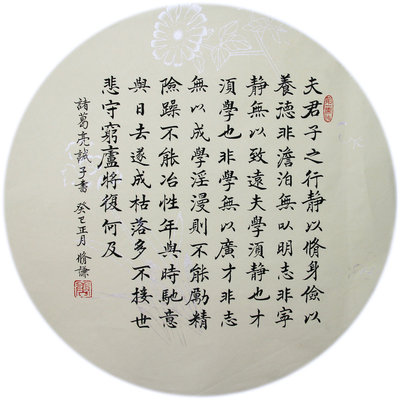 夫君子之行静以脩身儉以
養德非澹泊無以明志非寧
静無以致遠夫學湏静也才
湏學也非學無以廣才非志
無以成學淫漫則不能勵精
險躁不能冶性年與時馳意
與日去遂成枯落多不接世
悲守窮廬將復何及
諸葛亮誡子書 癸巳正月 脩謙